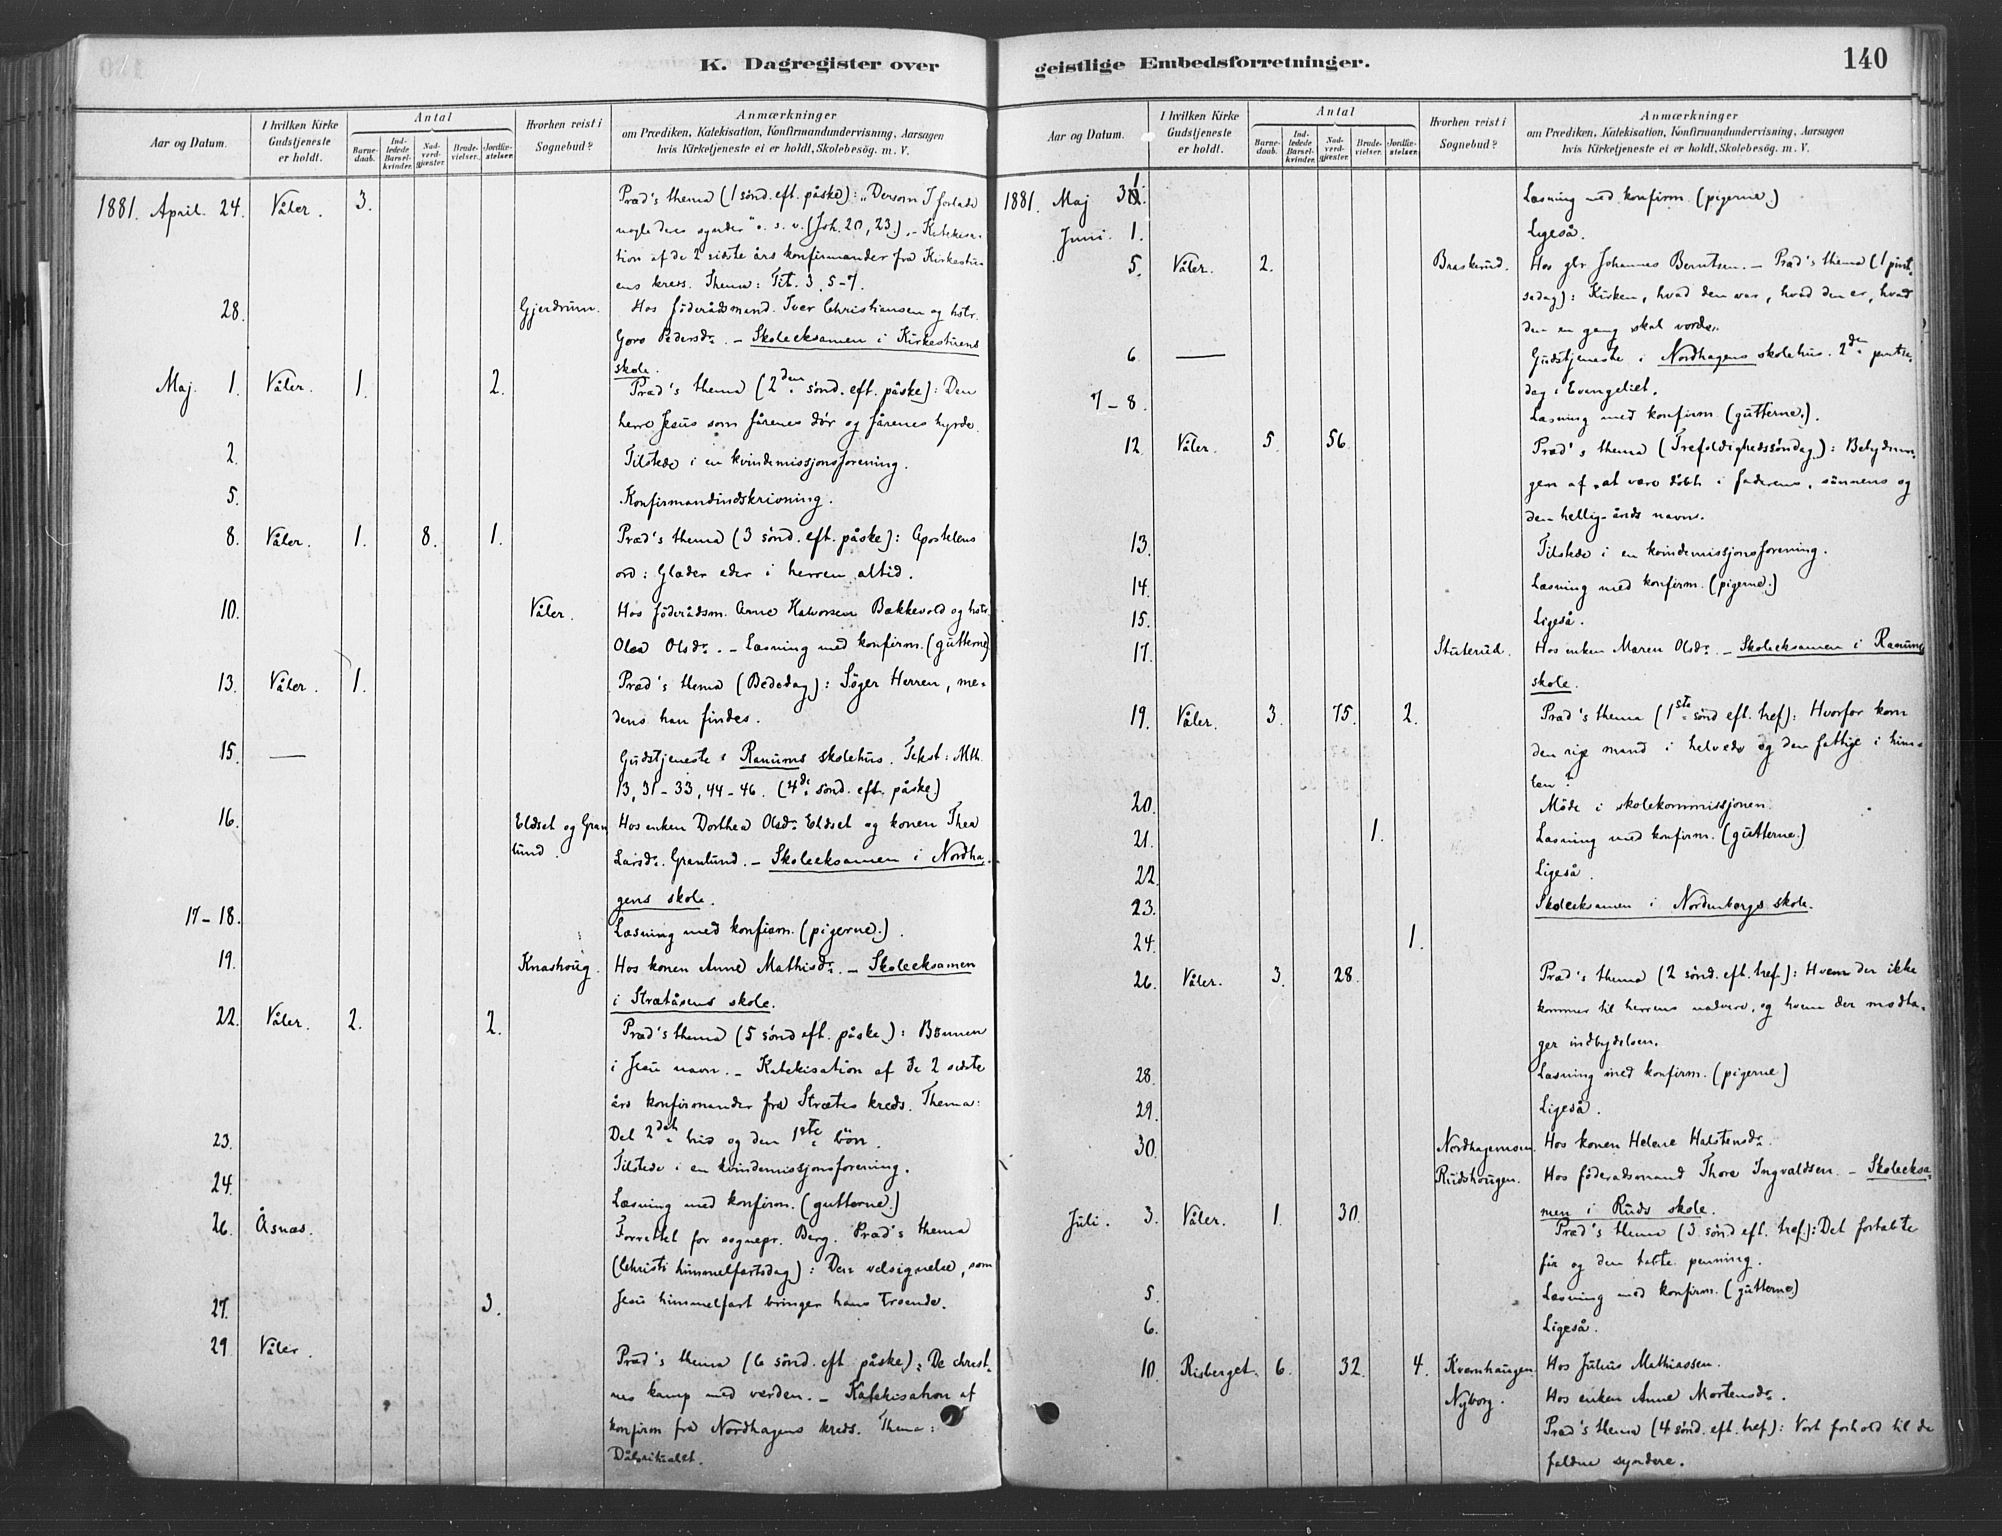 K. Dagregister over
Aar og Datum.
I hvilken Kirke Gudstjeneste er holdt.
Antal
Barnedaab.
Indledede Barselkvinder.
Nadverdgjæster.
Brudevielser.
Jordfæstelser.
Hvorhen reist i Sognebud?
Anmærkninger
om Prædiken, Katekisation, Konfirmandundervisning, Aarsagen
hvis Kirketjeneste ei er holdt, Skolebesøg. m. V.
1881. April. 24. Våler. 3. Præd's thema (1 sønd. eft. påske): „Dersom I forlade
nogle deres synder“ o. s. v. (Joh. 20, 23). – Katekisa-
tion af de 2 sidste års konfirmander fra Kirkestu-
ens kreds. Thema: Tit. 3, 5-7.
28. Gjerdrum. Hos föderådsmand Iver Christiansen og hstr.
Goro Pedersdr. – Skoleeksamen i Kirkestuens
skole.
Maj. 1. Våler. 1. 2. Præd's thema (2den sønd. eft. påske): Den
herre Jesus som fårenes dør og fårenes hyrde.
2. Tilstede i en kvindemissjonsforening.
5. Konfirmandindskrivning.
8. Våler. 1. 8. 1. Præd's thema (3 sønd. eft. påske): Apostelens
ord: Glæder eder i herren altid.
10. Våler. Hos föderådsm. Arne Halvorsen Bakkevold og hstr.
Olea Olsdr. – Læsning med konfirm. (gutterne)
13. Våler. 1. Præd's thema (Bededag): Søger Herren, me-
dens han findes.
15. — Gudstjeneste i Ranums skolehus. Tekst: Mth.
13, 31-33, 44-46. (4de sønd. eft. påske)
16. Eldset og Gran
lund. Hos enken Dorthea Olsdr. Eldset og konen Thea
Larsdr. Granlund. – Skoleeksamen i Nordha-
gens skole.
17-18. Læsning med konfirm. (pigerne.).
19. Knashoug. Hos konen Anne Mathisdr. – Skoleeksamen
i Strætåsens skole.
22. Våler. 2. 2. Præd's thema (5 sønd eft. påske.): Bønnen
i Jesu navn. – Katekisation af de 2 sidste
års konfirmander fra Strætes kreds. Thema:
Det 2det bud og den 1ste bön.
23. Tilstede i en kvindemissjonsforening.
24. Læsning med konfirm. (gutterne.)
26. Åsnæs. Forrettet for sognepr. Berg. Præd's thema
(Christi himmelfartsdag): Den velsignelse, som
Jesu himmelfart bringer hans troende.
27. 3.
29 Våler. Præd's thema (6 sønd. eft. påske): De christ-
nes kamp med verden. – Katekisation af
konfirm fra Nordhagens kreds. Thema:
Dåbsritualet.
geistlige Embedsforretninger.
140
Aar og Datum.
I hvilken Kirke Gudstjeneste er holdt.
Antal
Barnedaab.
Indledede Barselkvinder.
Nadverdgjæster.
Brudevielser.
Jordfæstelser.
Hvorhen reist i Sognebud?
Anmærkninger
om Prædiken, Katekisation, Konfirmandundervisning, Aarsagen
hvis Kirketjeneste ei er holdt, Skolebesøg. m. V.
1881. Maj 31. Læsning med konfirm. (pigerne.)
Juni. 1. Ligeså.
5. Våler. 2. Braskerud. Hos gbr Johannes Berntsen. – Præd's thema (1 pint-
sedag): Kirken, hvad den var, hvad den er, hvad
den en gang skal vorde.
6. — Gudstjeneste i Nordhagens skolehus. 2den pintse-
dag's Evangeliet.
7-8. Læsning med konfirm. (gutterne.).
12. Våler. 5. 56. Præd's thema (Trefoldighedssöndag.): Betydnin-
gen af at være døbt i faderens, sönnens og
den hellig-ånds navn.
13. Tilstede i en kvindemissjonsforening.
14. Læsning med konfirm. (pigerne.)
15. Ligeså.
17. Stuterud. Hos enken Maren Olsdr. – Skoleeksamen i Ranums
skole.
19. Våler. 3. 75. 2. Præd's thema (1ste sönd eft. tref): Hvorfor kom
den rige mand i helvede og den fattige i him-
len?
20. Møde i skolekommissjonen.
21. 1. Læsning med konfirm. (gutterne.)
22. Ligeså.
23. Skoleeksamen i Nordenborgs skole.
24. 1.
26. Våler. 3. 28. Præd's thema (2 sønd. eft. tref.): Hvem der ikke
kommer til herrens nadvere, og hvem der modta-
ger indbydelsen.
28. Læsning med konfirm. (pigerne)
29. Ligeså.
30. Nordhagemoen Hos konen Helene Halstensdr.
Rudshougen. Hos föderådsmand Thore Ingvaldsen. – Skoleeksa-
men i Ruds skole.
Juli. 3. Våler. 1. 30. Præd's thema (3 sønd eft. tref.): Det fortabte
får og den tabte penning.
5. Læsning med konfirm. (gutterne)
6. Ligeså.
10. Risberget. 6. 32. 4. Kvernhaugen Hos Julius Mathiassen.
Nyborg. Hos enken Anne Mortensdr.
Præd's thema (4 sønd. eft. tref): Vort forhold til de
faldne syndere.